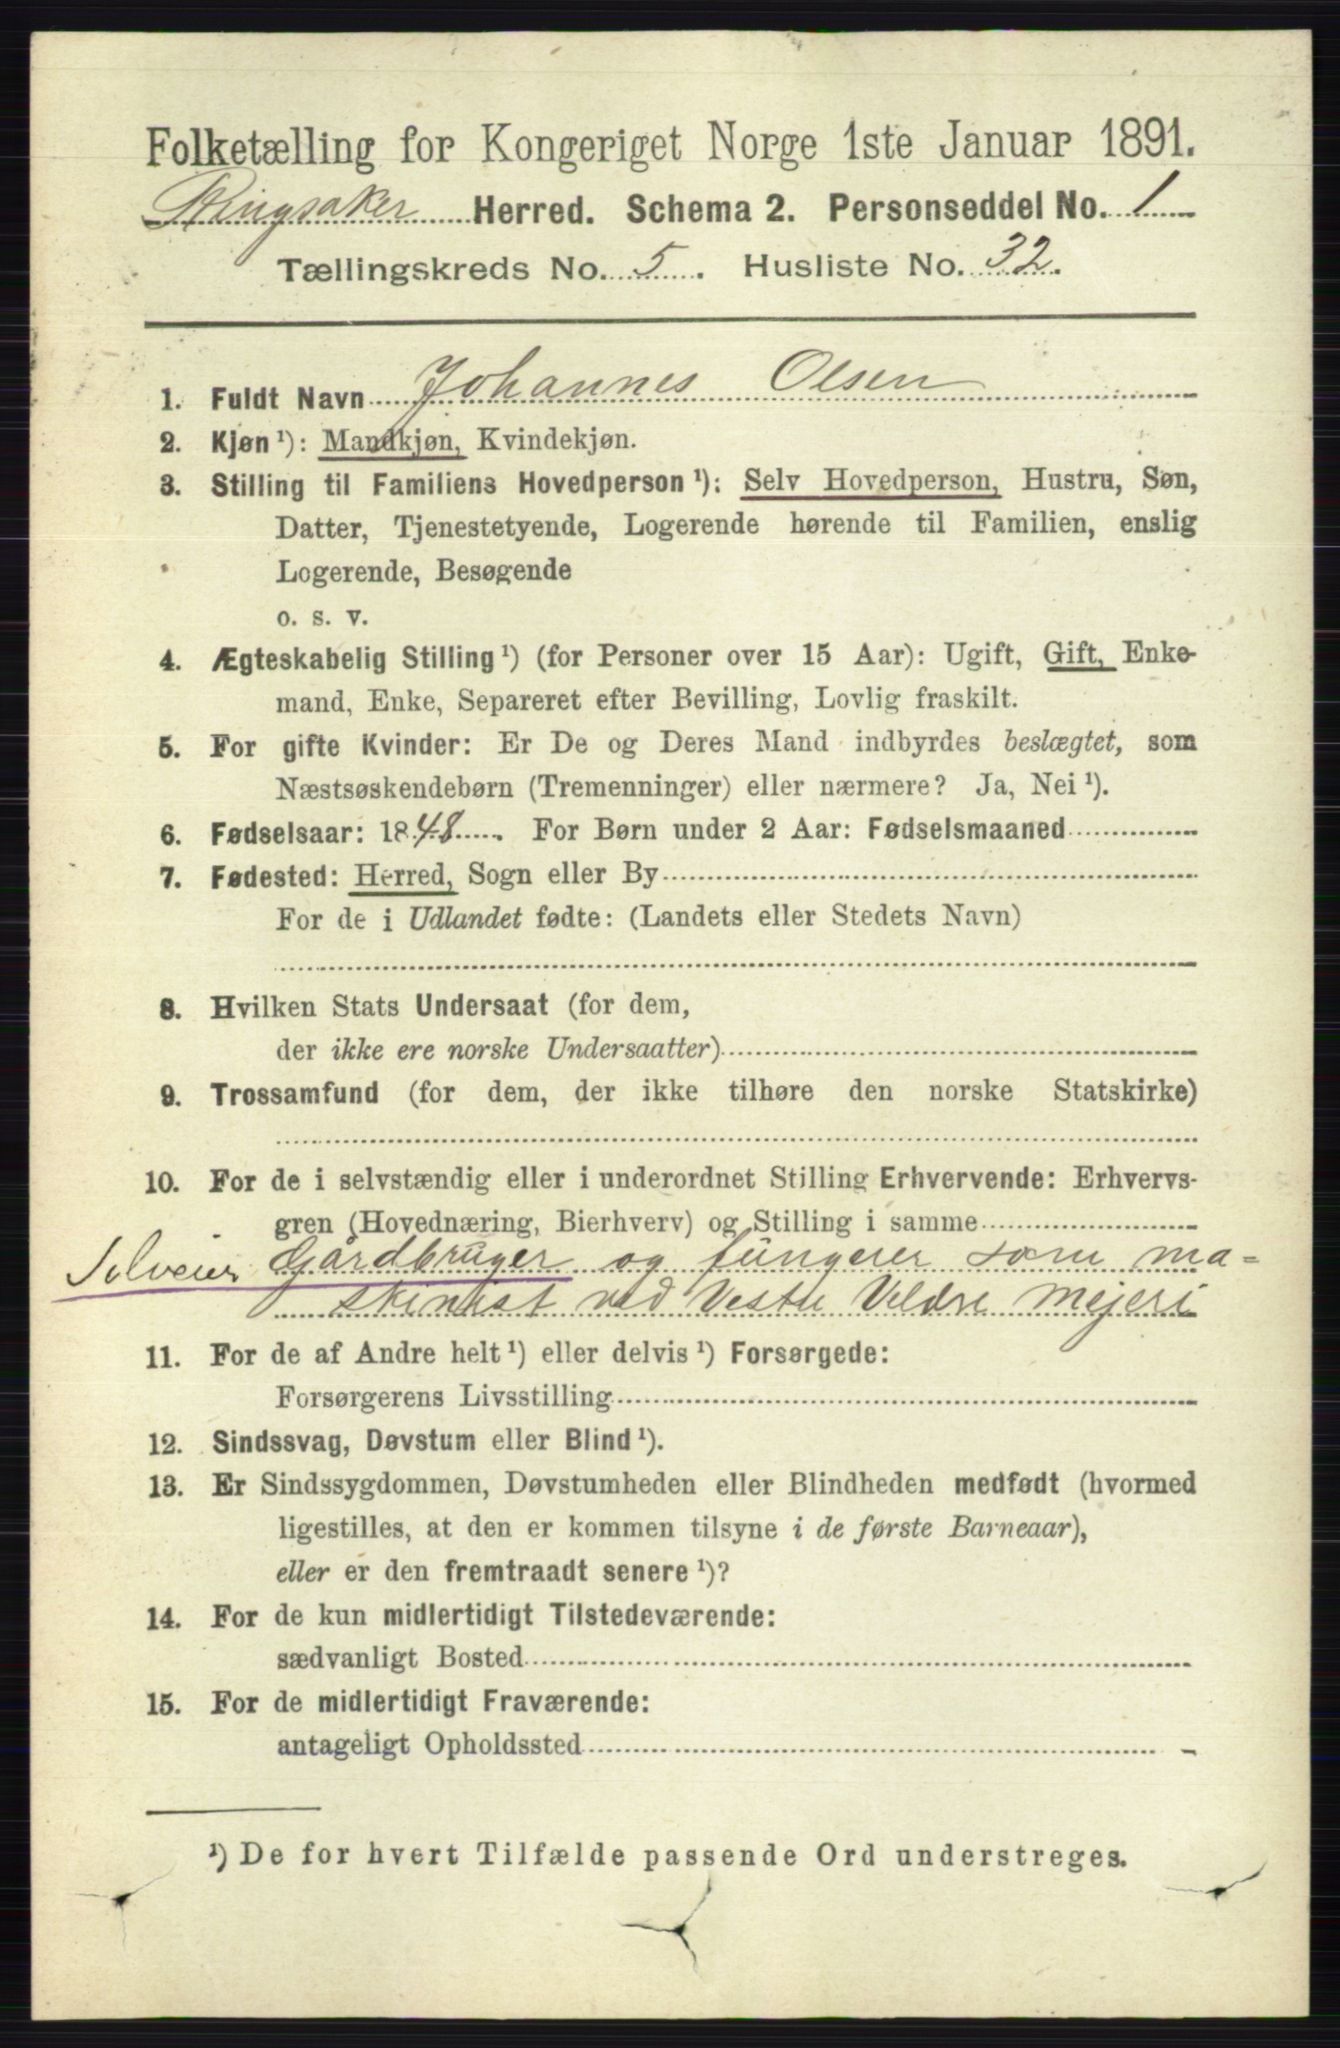 Folketælling for Kongeriget Norge 1ste Januar 1891.
Ringsaker Herred. Schema 2. Personseddel No. 1
Tællingskreds No. 5. Husliste No. 32.
1. Fuldt Navn Johannes Olsen
2. Kjøn ¹): Mandkjøn, Kvindekjøn.
3. Stilling til Familiens Hovedperson ¹): Selv Hovedperson, Hustru, Søn,
Datter, Tjenestetyende, Logerende hørende til Familien, enslig
Logerende, Besøgende
o. s. v.
4. Ægteskabelig Stilling ¹) (for Personer over 15 Aar): Ugift, Gift, Enke-
mand, Enke, Separeret efter Bevilling, Lovlig fraskilt.
5. For gifte Kvinder: Er De og Deres Mand indbyrdes beslægtet, som
Næstsøskendebørn (Tremenninger) eller nærmere? Ja, Nei ¹).
6. Fødselsaar: 1848. For Børn under 2 Aar: Fødselsmaaned
7. Fødested: Herred, Sogn eller By
For de i Udlandet fødte: (Landets eller Stedets Navn)
8. Hvilken Stats Undersaat (for dem,
der ikke ere norske Undersaatter)
9. Trossamfund (for dem, der ikke tilhøre den norske Statskirke)
10. For de i selvstændig eller i underordnet Stilling Erhvervende: Erhvervs-
gren (Hovednæring, Bierhverv) og Stilling i samme
Selveier Gårdbruger og fungerer som ma-
skinist ved Vestre Veldre Mejeri
11. For de af Andre helt ¹) eller delvis ¹) Forsørgede:
Forsørgerens Livsstilling
12. Sindssvag, Døvstum eller Blind ¹).
13. Er Sindssygdommen, Døvstumheden eller Blindheden medfødt (hvormed
ligestilles, at den er kommen tilsyne i de første Barneaar),
eller er den fremtraadt senere ¹)?
14. For de kun midlertidigt Tilstedeværende:
sædvanligt Bosted
15. For de midlertidigt Fraværende:
antageligt Opholdssted
¹) De for hvert Tilfælde passende Ord understreges.